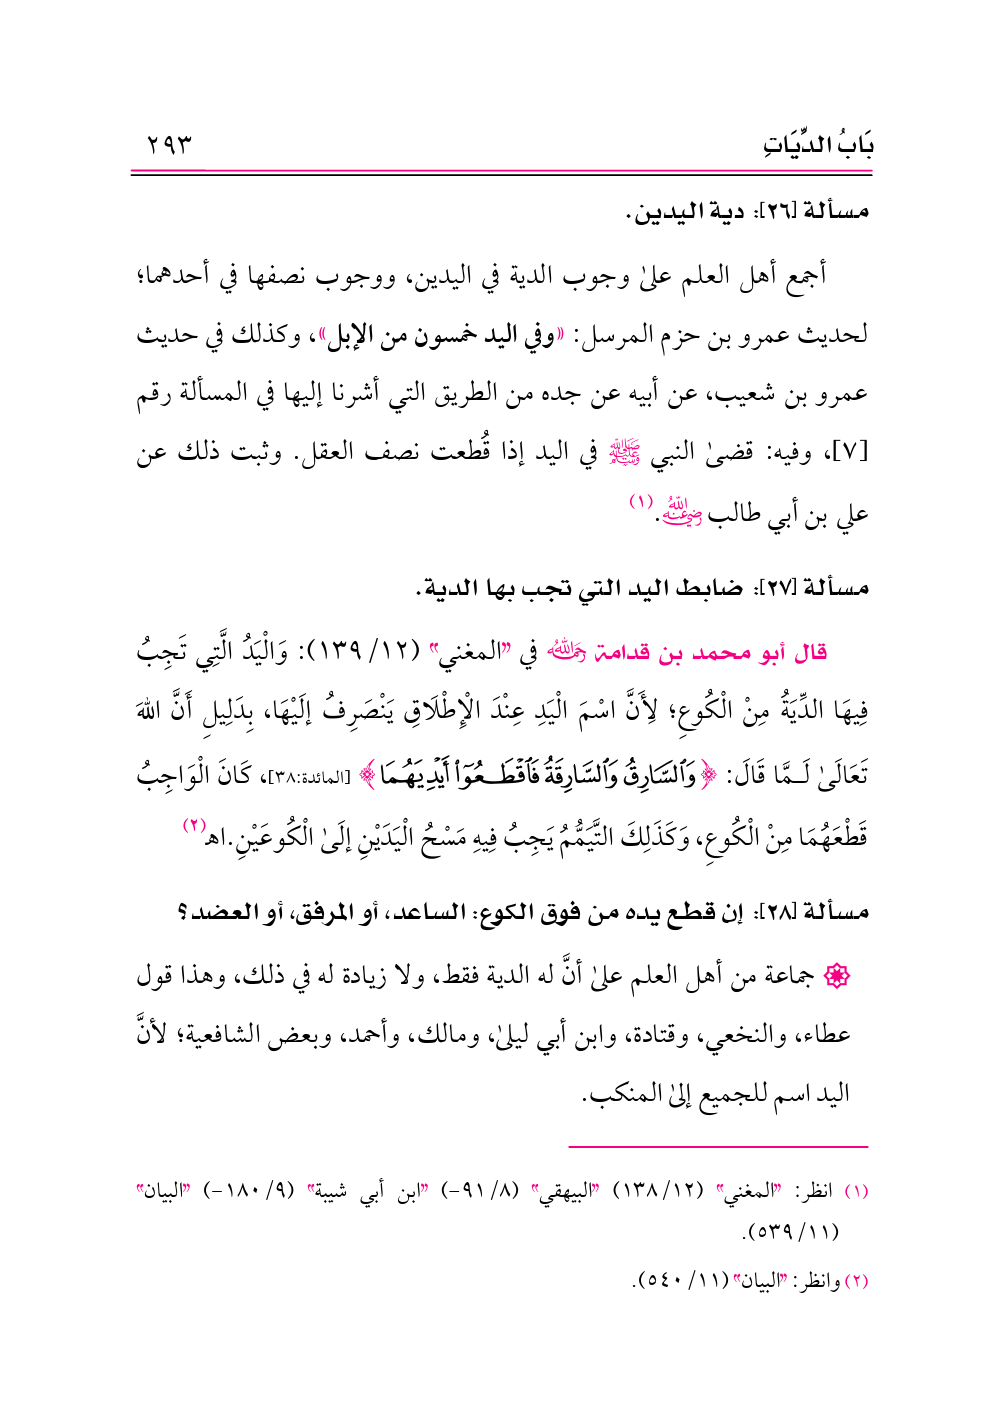 بَابُ الدِّيَاتِ ٢٩٣
مسألة [٢٦]: دية اليدين.
أجمع أهل العلم علىٰ وجوب الدية في اليدين، ووجوب نصفها في أحدهما؛
لحديث عمرو بن حزم المرسل: «وفي اليد خمسون من الإبل»، وكذلك في حديث
عمرو بن شعيب، عن أبيه عن جده من الطريق التي أشرنا إليها في المسألة رقم
[٧]، وفيه: قضىٰ النبي ﷺ في اليد إذا قُطعت نصف العقل. وثبت ذلك عن
علي بن أبي طالب رضي الله عنه.(١)
مسألة [٢٧]: ضابط اليد التي تجب بها الدية.
قال أبو محمد بن قدامة رحمه الله في "المغني" (١٢/ ١٣٩): وَالْيَدُ الَّتِي تَجِبُ
فِيهَا الدِّيَةُ مِنْ الْكُوعِ؛ لِأَنَّ اسْمَ الْيَدِ عِنْدَ الْإِطْلَاقِ يَنْصَرِفُ إلَيْهَا، بِدَلِيلِ أَنَّ اللهَ
تَعَالَىٰ لَـمَّا قَالَ: ﴿وَٱلسَّارِقُ وَٱلسَّارِقَةُ فَٱقْطَعُوٓاْ أَيْدِيَهُمَا﴾ [المائدة:٣٨]، كَانَ الْوَاجِبُ
قَطْعَهُمَا مِنْ الْكُوعِ، وَكَذَلِكَ التَّيَمُّمُ يَجِبُ فِيهِ مَسْحُ الْيَدَيْنِ إلَىٰ الْكُوعَيْنِ.اهـ(٢)
مسألة [٢٨]: إن قطع يده من فوق الكوع: الساعد، أو المرفق، أو العضد؟
جماعة من أهل العلم علىٰ أنَّ له الدية فقط، ولا زيادة له في ذلك، وهذا قول
عطاء، والنخعي، وقتادة، وابن أبي ليلىٰ، ومالك، وأحمد، وبعض الشافعية؛ لأنَّ
اليد اسم للجميع إلىٰ المنكب.
(١) انظر: "المغني" (١٢/ ١٣٨) "البيهقي" (٨/ ٩١-) "ابن أبي شيبة" (٩/ ١٨٠-) "البيان"
(١١/ ٥٣٩).
(٢) وانظر: "البيان" (١١/ ٥٤٠).